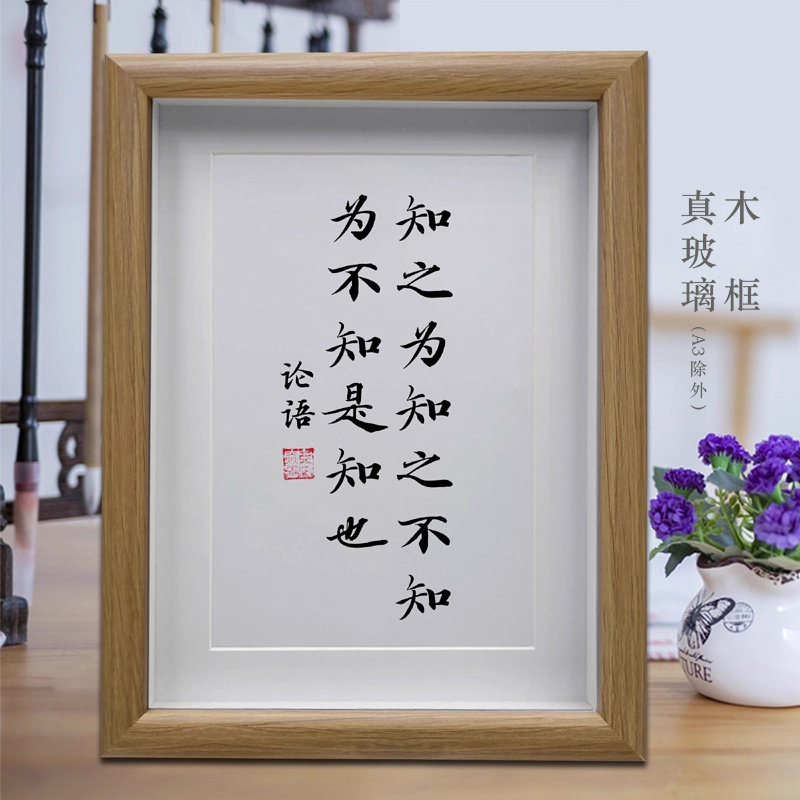 知之为知之不知
为不知是知也
论语
木框
真玻璃(A3除外)
TURE